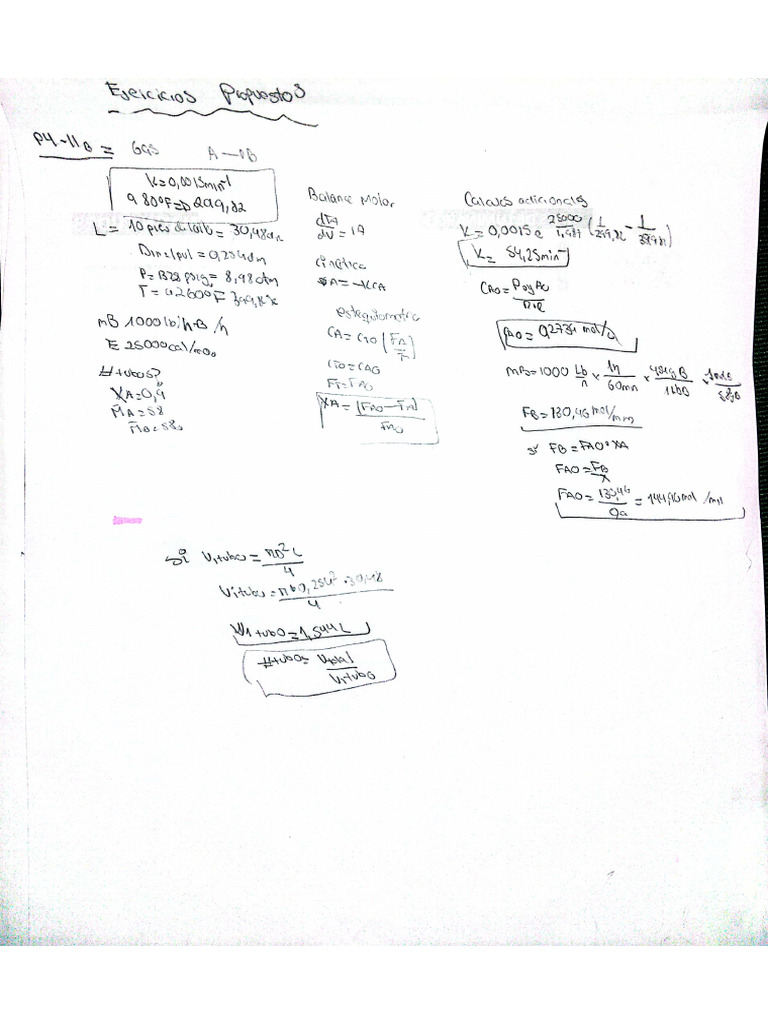 Ejercicios Propuestos
P4-11B = Gas A → B
K=0,0015min⁻¹
a 80°F => 299,82
L = 10 pies de largo = 30,48dm
Din=1pul = 0,254dm
P= 132 psig = 8,98 atm
T = a 260°F
mB 1000 lb/h B /h
E 25000cal/mol
# tubos?
XA=0,9
MA=58
MB=58
Balance Molar
dFA/dV = rA
Cinética
rA = -KCA
estequiometria
CA = CTO (FA/FT)
CTO=CAO
FT=FAO
XA = (FAO-FA)/FAO
Calculos adicionales
K = 0,0015 e 25000/1,987 (1/299,82 -
K = 54,25min⁻¹
CAO = PoyAo/
CAO = 0,2734 mol/
MB=1000 Lb/h x 1h/60mn x
FB = 130,46 mol/min
si FB = FAO*XA
FAO = FB/X
FAO = 130,46/0,9 = 144,96 mol /min
si V1tubo = πD²L/4
V1tubo = π 0,254² · 30,48/4
V1tubo = 1,544 L
#tubo = Vtotal/V1tubo